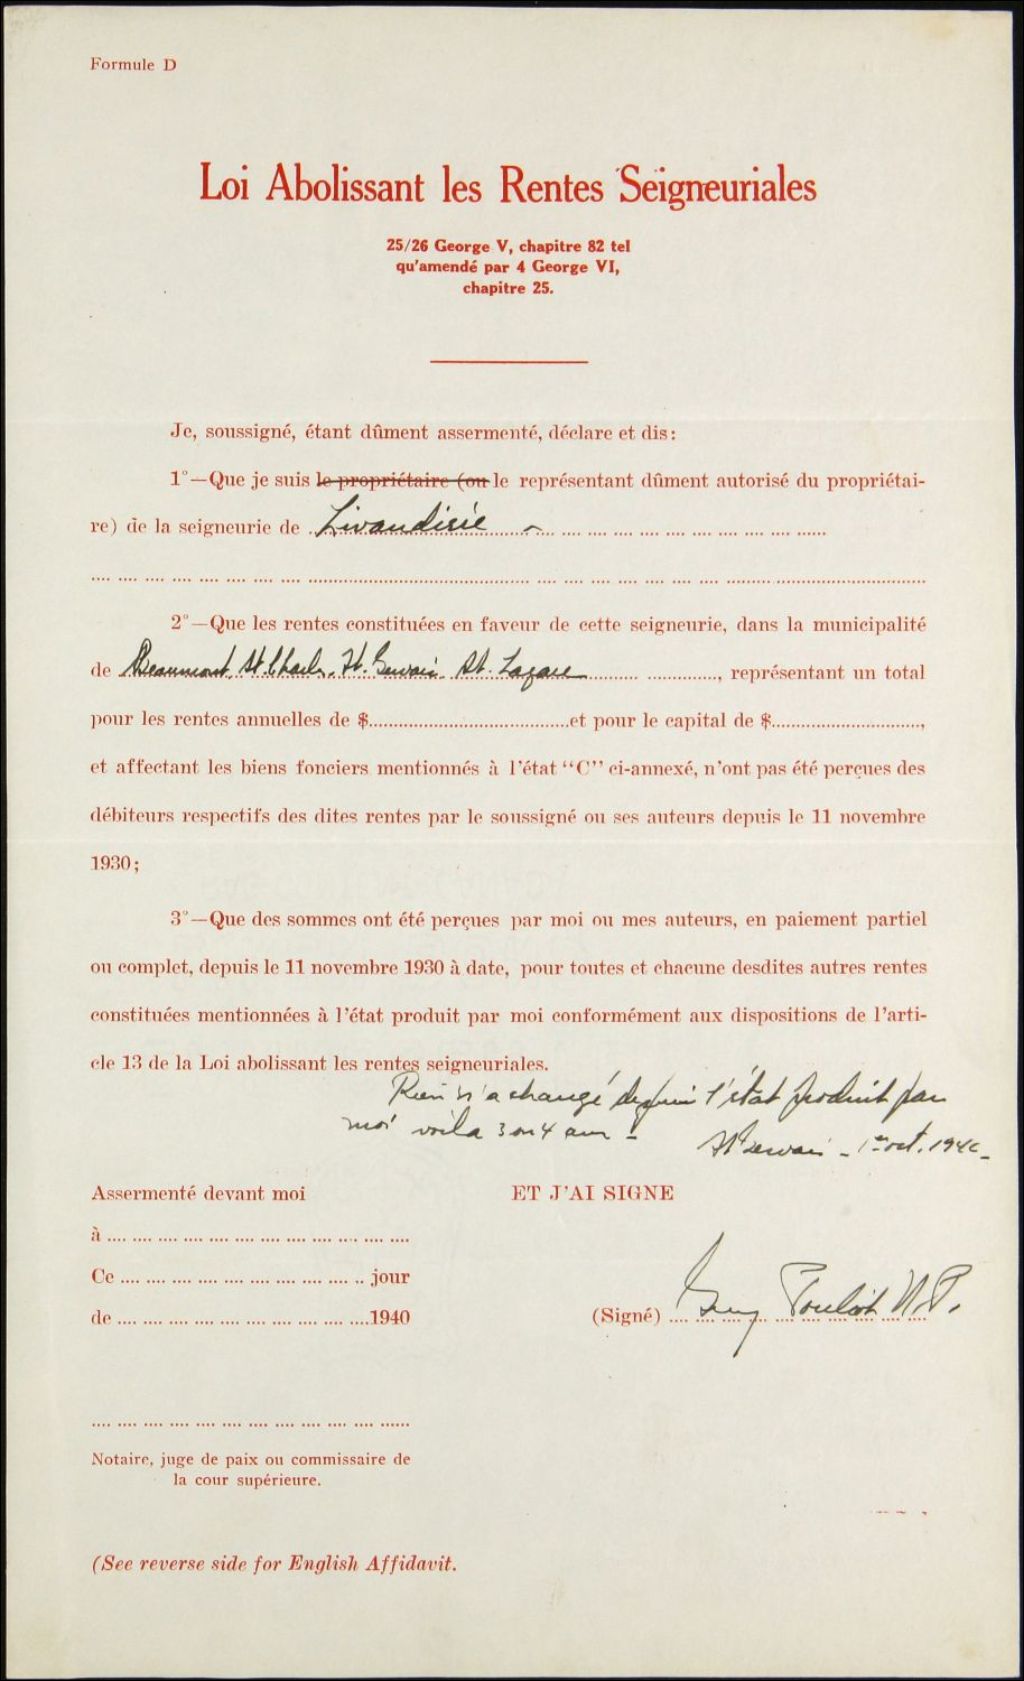 Formule D
Loi Abolissant les Rentes Seigneuriales
25/26 George V, chapitre 82 tel
qu'amendé par 4 George VI,
chapitre 25.
Je, soussigné, étant dûment assermenté, déclare et dis:
1°—Que je suis le propriétaire (ou le représentant dûment autorisé du propriétai-
re) de la seigneurie de Livaudière
2°—Que les rentes constituées en faveur de cette seigneurie, dans la municipalité
de Beaumont, St. Charles, St. Gervais St. Lazare , représentant un total
pour les rentes annuelles de $ et pour le capital de $ ,
et affectant les biens fonciers mentionnés à l'état "C" ci-annexé, n'ont pas été perçues des
débiteurs respectifs des dites rentes par le soussigné ou ses auteurs depuis le 11 novembre
1930;
3°—Que des sommes ont été perçues par moi ou mes auteurs, en paiement partiel
ou complet, depuis le 11 novembre 1930 à date, pour toutes et chacune desdites autres rentes
constituées mentionnées à l'état produit par moi conformément aux dispositions de l'arti-
cle 13 de la Loi abolissant les rentes seigneuriales.
Rien n'a changé depuis l'état produit par
moi voila 3 ou 4 ans -
St Gervais - 1er oct. 1940 -
Assermenté devant moi
ET J'AI SIGNE
à
Ce jour
de 1940
(Signé) Guy Pouliot N.P.
Notaire, juge de paix ou commissaire de
la cour supérieure.
(See reverse side for English Affidavit.